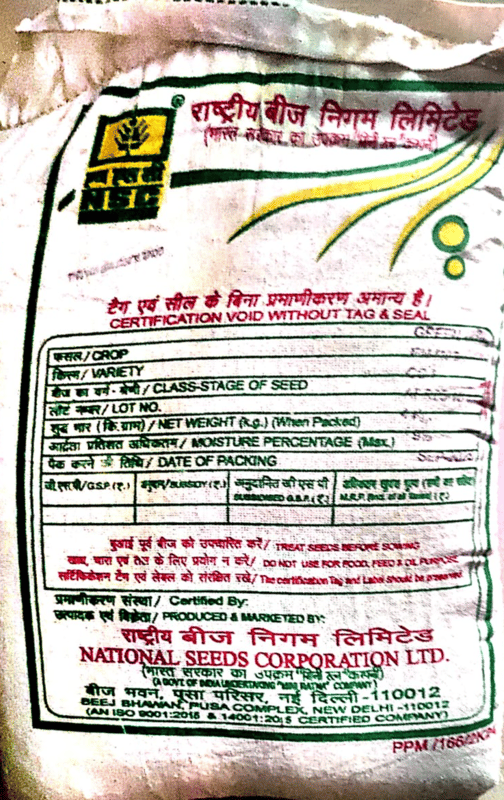 राष्ट्रीय बीज निगम लिमिटेड
(भारत सरकार का उपक्रम "मिनी रत्न" कम्पनी)
एन एस सी
NSC
टैग एवं सील के बिना प्रमाणीकरण अमान्य है।
CERTIFICATION VOID WITHOUT TAG & SEAL
फसल/CROP GREEN
किस्म/VARIETY
बीज का वर्ग-श्रेणी/CLASS-STAGE OF SEED
लौट नम्बर/LOT NO.
शुद्ध भार (कि.ग्राम)/NET WEIGHT (k.g.) (When Packed)
आर्द्रता प्रतिशत अधिकतम/MOISTURE PERCENTAGE (Max.)
पैक करने की तिथि/DATE OF PACKING
जी.एस.पी/G.S.P.(₹) अनुदान/SUBSIDY (₹) अनुदानित जी एस पी
SUBSIDISED G.S.P. (₹) M.R.P. (Incl. of all taxes) (₹)
बुआई पूर्व बीज को उपचारित करें/ TREAT SEEDS BEFORE SOWING
खाद्य, चारा एवं तेल के लिए प्रयोग न करें/ DO NOT USE FOR FOOD, FEED & OIL PURPOSE
सर्टिफिकेशन टैग एवं लेबल को संरक्षित रखें/ The certification Tag and Label should be preserved
प्रमाणीकरण संस्था/ Certified By:
उत्पादक एवं विक्रेता/ PRODUCED & MARKETED BY:
राष्ट्रीय बीज निगम लिमिटेड
NATIONAL SEEDS CORPORATION LTD.
(भारत सरकार का उपक्रम "मिनी रत्न" कम्पनी)
(A GOVT. OF INDIA UNDERTAKING "MINI RATNA" COMPANY)
बीज भवन, पूसा परिसर, नई दिल्ली-110012
BEEJ BHAWAN, PUSA COMPLEX, NEW DELHI-110012
(AN ISO 9001:2015 & 14001:2015 CERTIFIED COMPANY)